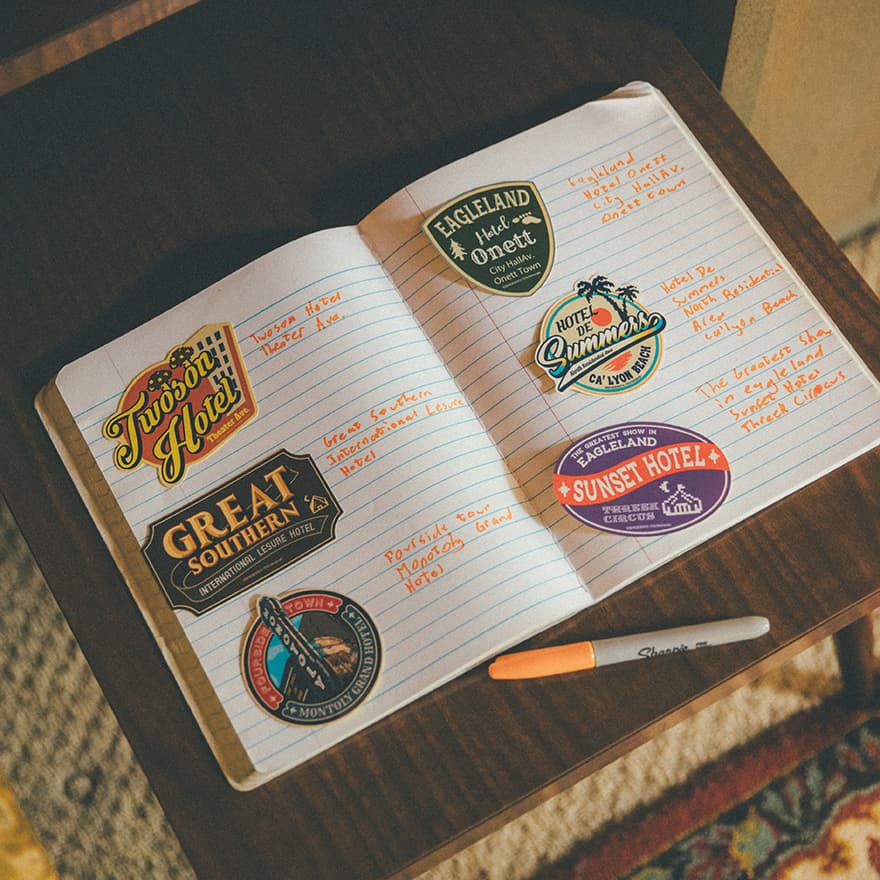 Twoson
Hotel
Theater Ave.
Twoson Hotel
Theater Ave.
GREAT
SOUTHERN
INTERNATIONAL LESURE HOTEL
Great Southern
International Lesure
Hotel
FOURSIDE TOWN
MONOTOLY
MONTOLY GRAND HOTEL
Fourside town
Monotoly Grand
Hotel
EAGLELAND
Hotel
Onett
City HallAv.
Onett Town
Eagleland
Hotel Onett
City HallAv.
Onett town
HOTEL
DE
Summers
North Residential Area
CA' LYON BEACH
Hotel De
Summers
North Residential
Area
Ca'lyon Beach
THE GREATEST SHOW IN
EAGLELAND
SUNSET HOTEL
THREEK
CIRCUS
The Greatest Show
in eagleland
Sunset Hotel
Threek Circus
Sharpie